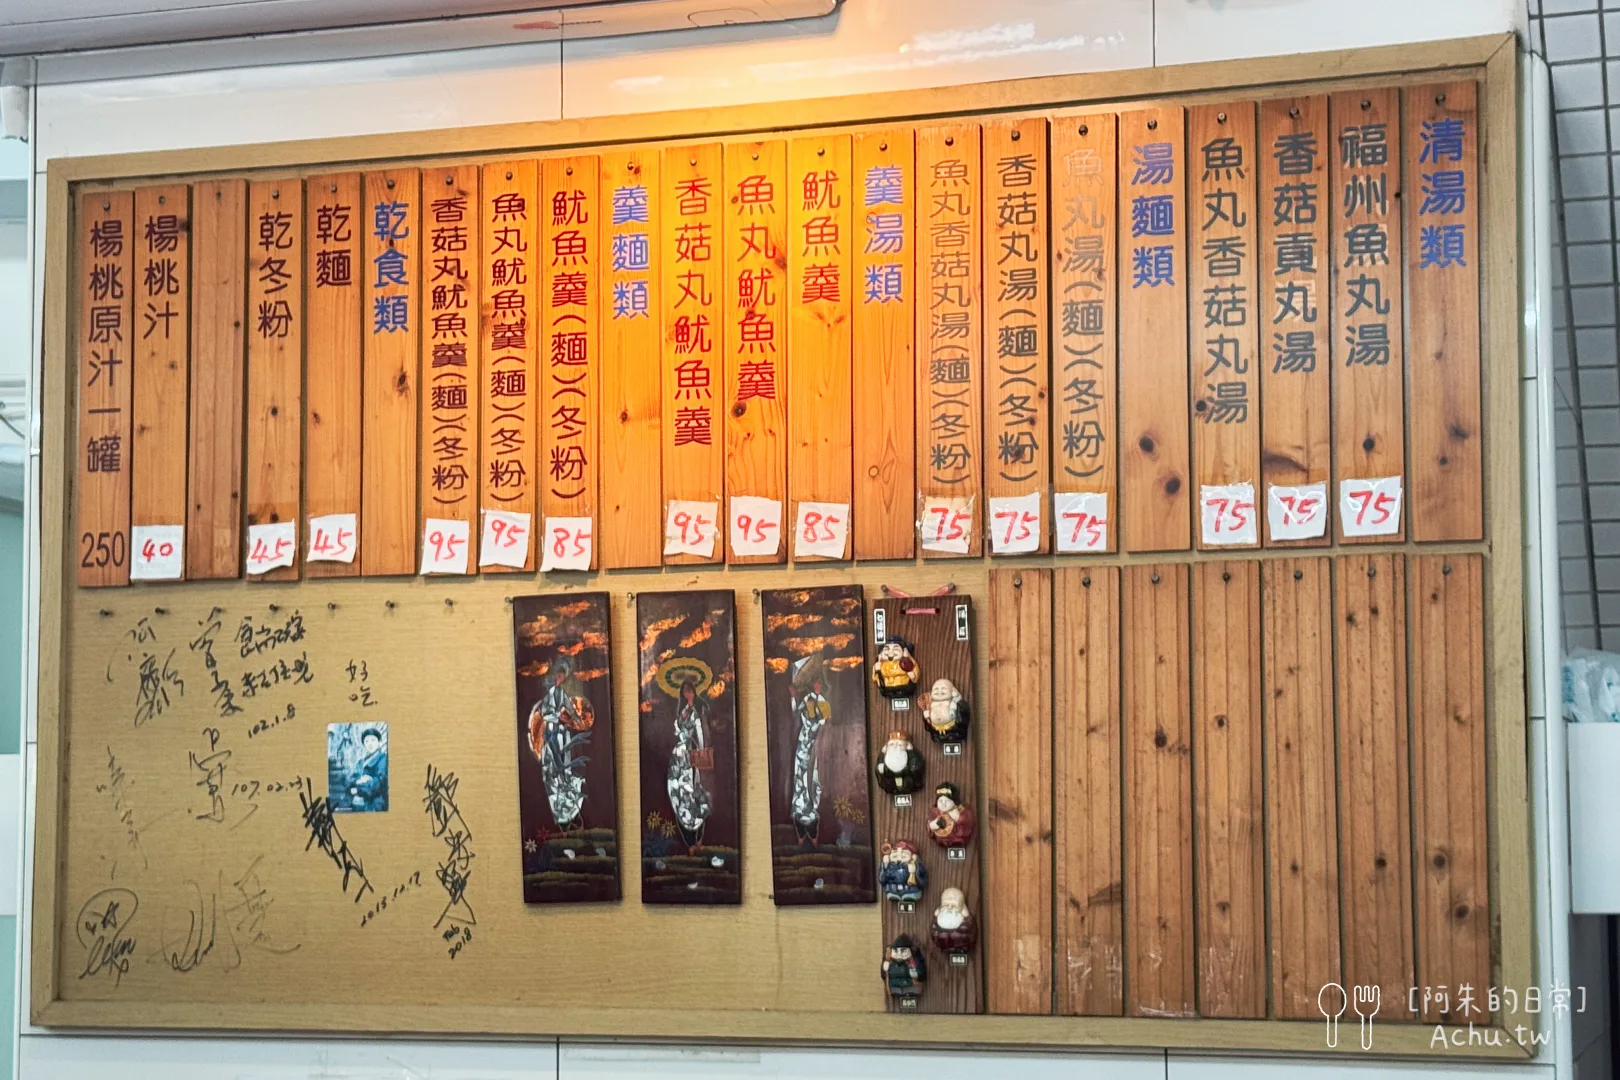 清湯類
福州魚丸湯 75
香菇貢丸湯 75
魚丸香菇丸湯 75
湯麵類
魚丸湯(麵)(冬粉) 75
香菇丸湯(麵)(冬粉) 75
魚丸香菇丸湯(麵)(冬粉) 75
羹湯類
魷魚羹 85
魚丸魷魚羹 95
香菇丸魷魚羹 95
羹麵類
魷魚羹(麵)(冬粉) 85
魚丸魷魚羹(麵)(冬粉) 95
香菇丸魷魚羹(麵)(冬粉) 95
乾食類
乾麵 45
乾冬粉 45
楊桃汁 40
楊桃原汁一罐 250
好吃
102.1.8
107.02.23
2013.10.17
2018
[阿朱的日常]
Achu.tw